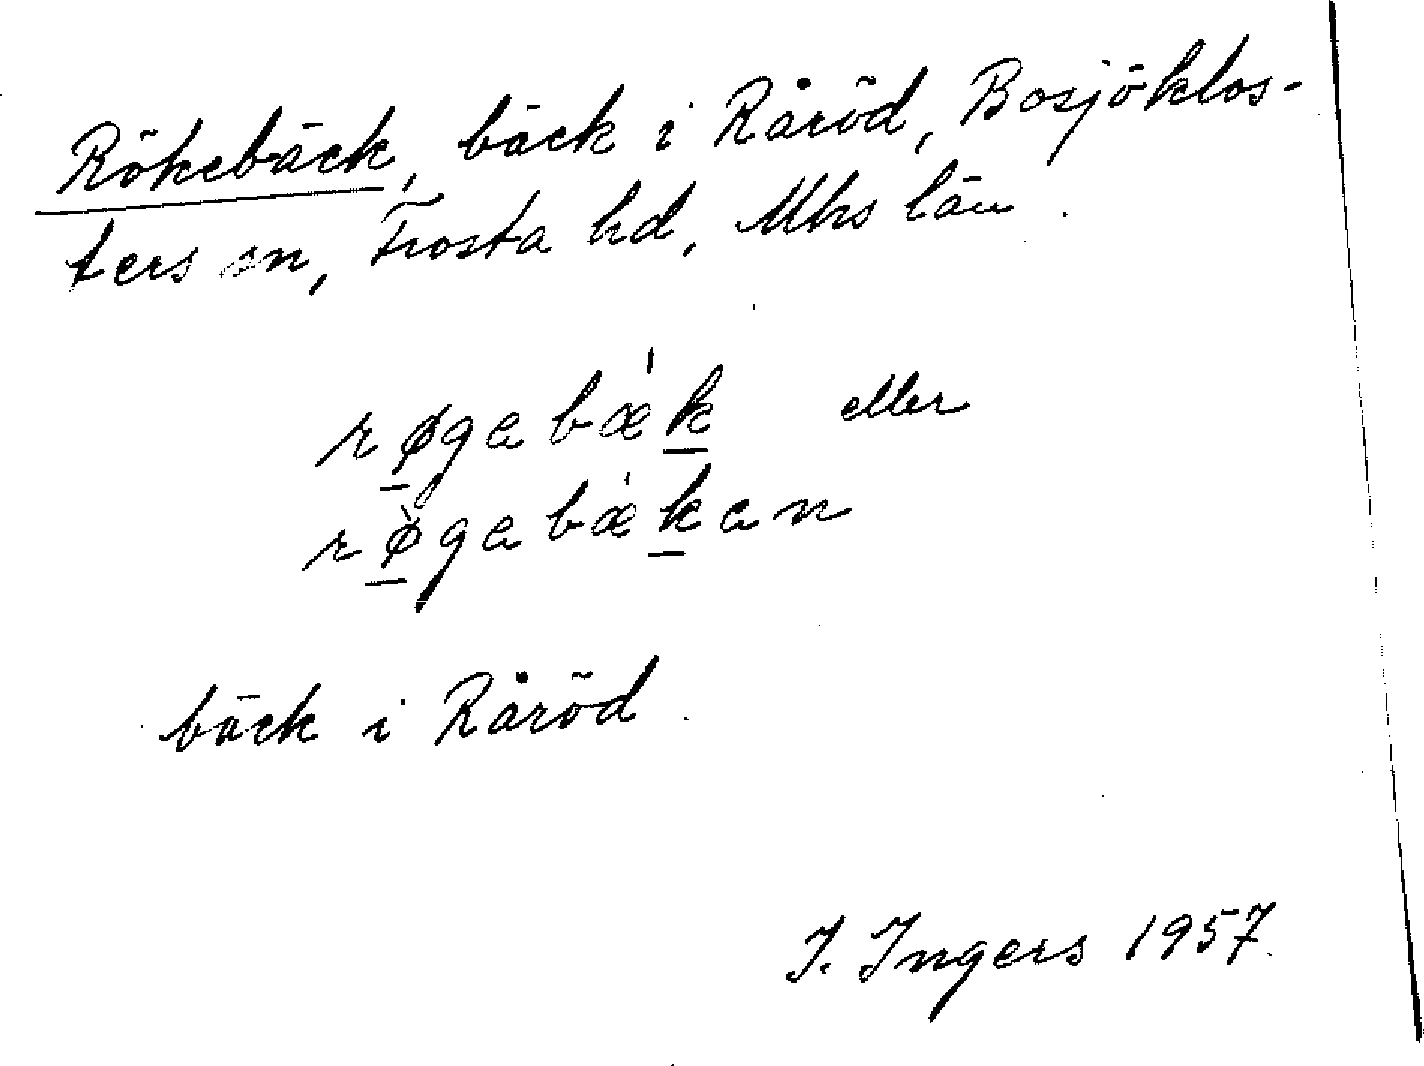 Rökebäck, bäck i Råröd, Bosjöklos-
ters sn, Frosta hd, Mhs län.
røgebæ'k eller
rø̀gebæ'ken
bäck i Råröd.
I. Ingers 1957.